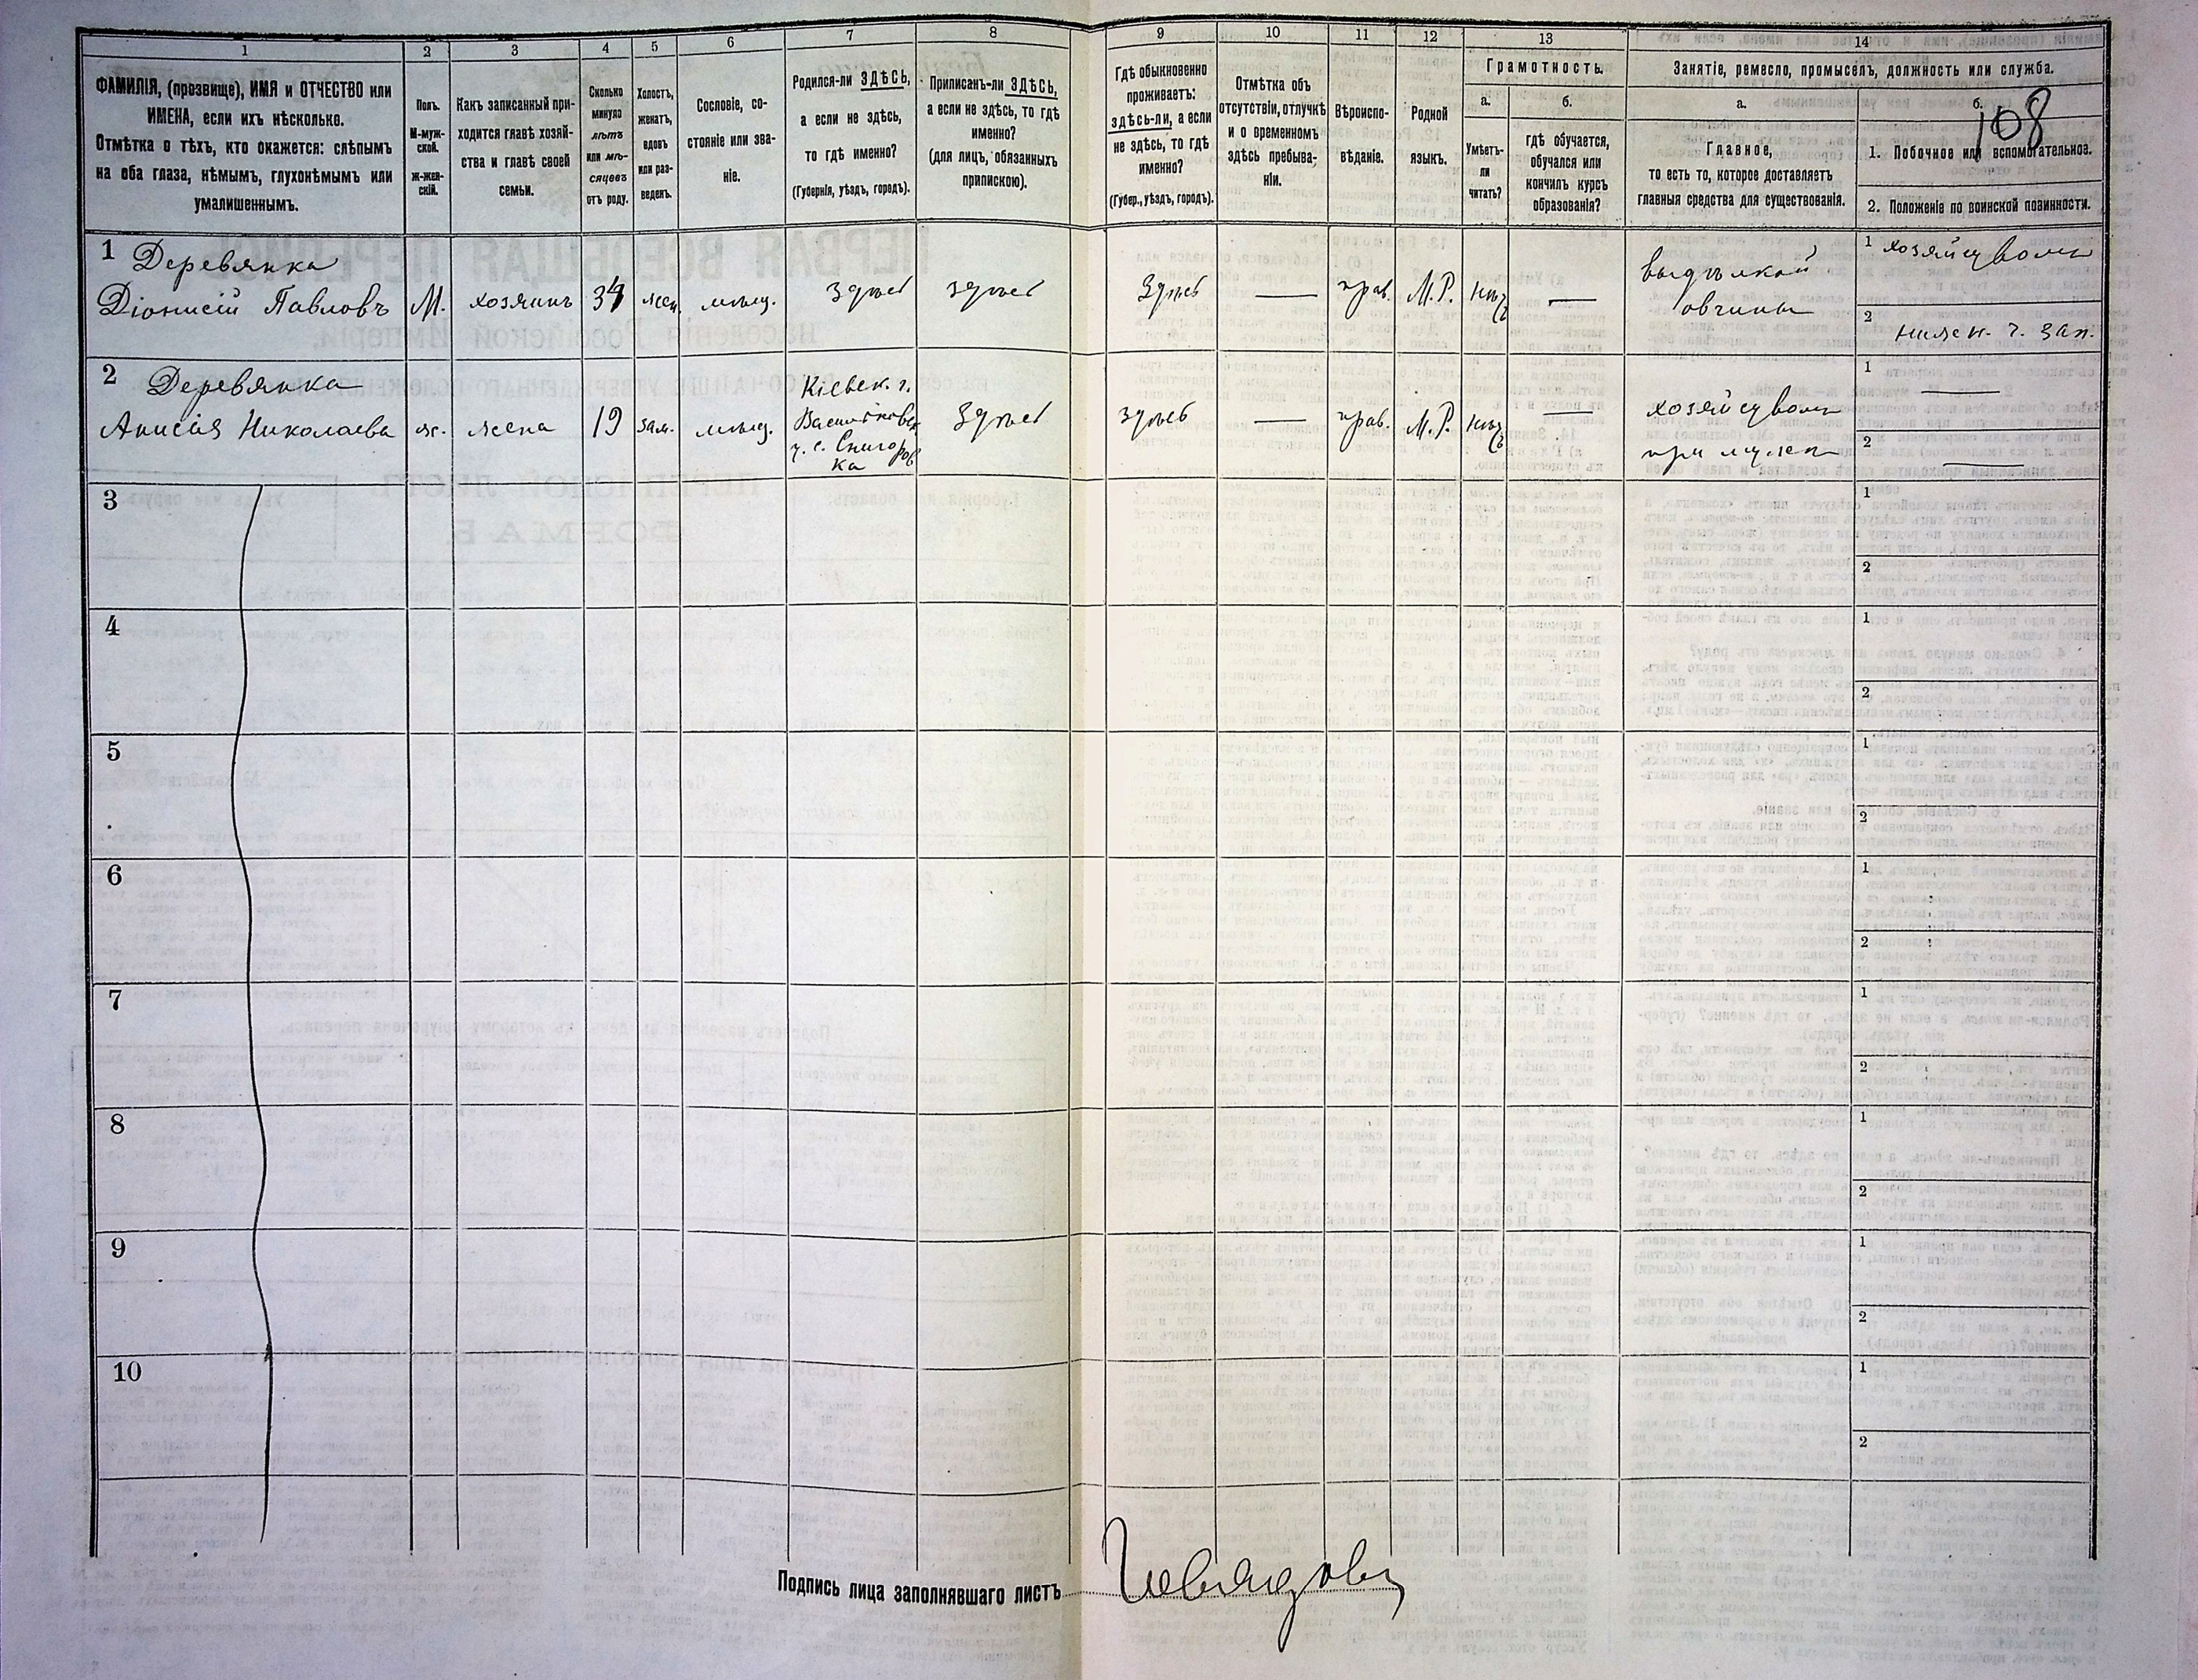 1
2
3
4
5
6
7
8
9
10
11
12
13
14
ФАМИЛІЯ, (прозвище), ИМЯ и ОТЧЕСТВО или
ИМЕНА, если ихъ нѣсколько.
Отмѣтка о тѣхъ, кто окажется: слѣпымъ
на оба глаза, нѣмымъ, глухонѣмымъ или
умалишеннымъ.
Полъ.
М-муж-
ской.
Ж-жен-
скій.
Какъ записанный при-
ходится главѣ хозяй-
ства и главѣ своей
семьи.
Сколько
минуло
лѣтъ
или мѣ-
сяцевъ
отъ роду.
Холостъ,
женатъ,
вдовъ
или раз-
веденъ.
Сословіе, со-
стояніе или зва-
ніе.
Родился-ли ЗДѢСЬ,
а если не здѣсь,
то гдѣ именно?
(Губернія, уѣздъ, городъ).
Приписанъ-ли ЗДѢСЬ,
а если не здѣсь, то гдѣ
именно?
(для лицъ, обязанныхъ
припискою).
Гдѣ обыкновенно
проживаетъ:
здѣсь-ли, а если
не здѣсь, то гдѣ
именно?
(Губер., уѣздъ, городъ).
Отмѣтка объ
отсутствіи, отлучкѣ
и о временномъ
здѣсь пребыва-
ніи.
Вѣроиспо-
вѣданіе.
Родной
языкъ.
Грамотность.
а.
Умѣетъ-
ли
читать?
б.
гдѣ обучается,
обучался или
кончилъ курсъ
образованія?
Занятіе, ремесло, промыселъ, должность или служба.
а.
Главное,
то есть то, которое доставляетъ
главныя средства для существованія.
б.
108
1. Побочное или вспомогательное.
2. Положеніе по воинской повинности.
1 Деревянка
Діонисій Павловъ М. хозяинъ 34 жен. мѣщ. здѣсь здѣсь здѣсь — прав. М.Р. нѣтъ —
выдѣлкой
овчины
1 хозяйствомъ
2 нижн. ч. зап.
2 Деревянка
Анисія Николаева ж. жена 19 зам. мѣщ.
Кіевск. г.
Васильковск.
у. с. Снигоров
ка
здѣсь здѣсь — прав. М.Р. нѣтъ —
хозяйствомъ
при мужѣ
1 —
2
3
1
2
4
1
2
5
1
2
6
1
2
7
1
2
8
1
2
9
1
2
10
1
2
Подпись лица заполнявшаго листъ